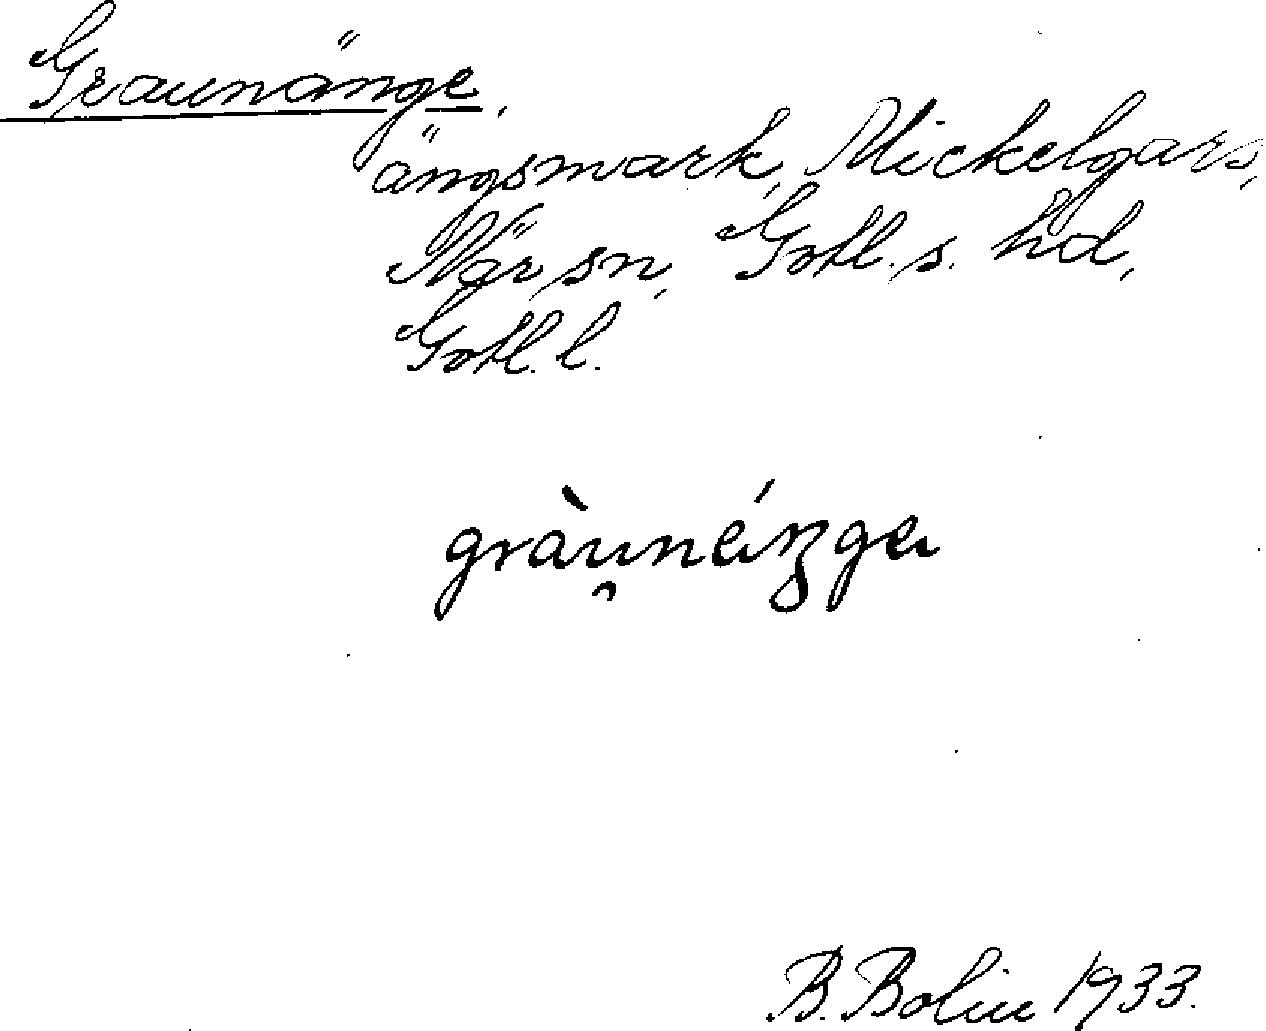 Graunänge,
ängsmark, Mickelgars,
När sn, Gotl. s. hd,
Gotl. l.
gràu̯néŋga
B. Bolin 1933.